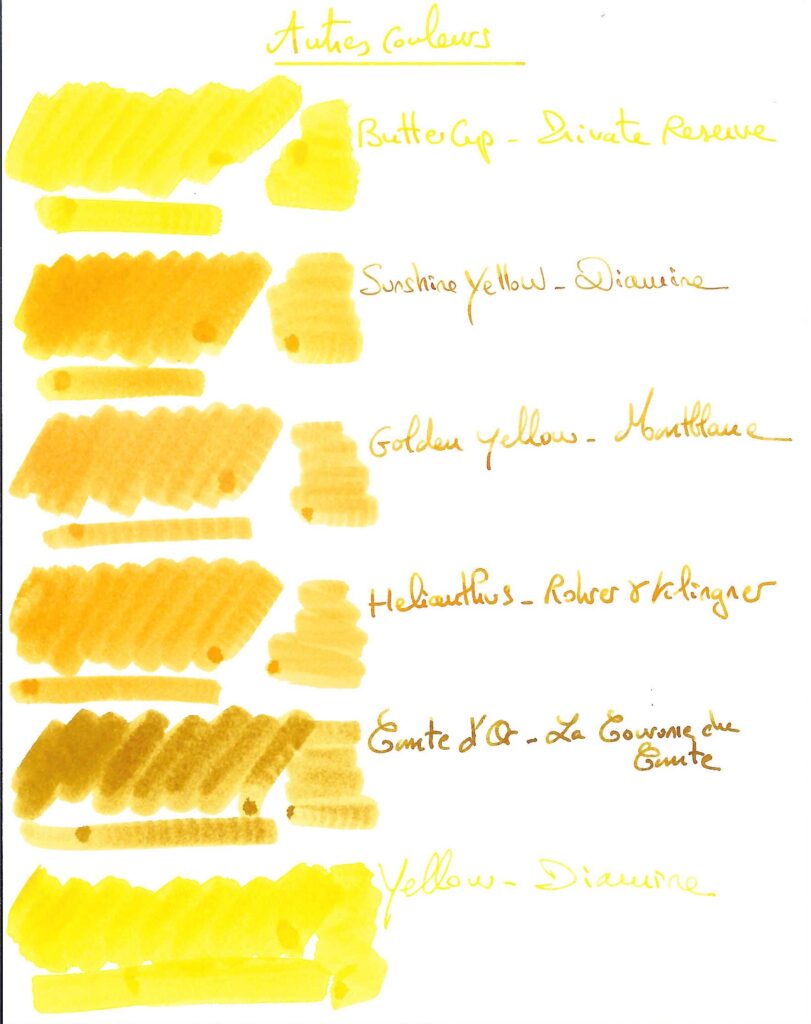 Autres Couleurs
ButterCup - Private Reserve
Sunshine Yellow - Diamine
Golden yellow - Montblanc
Helianthus - Rohrer & Klingner
Comte d'Or - La Couronne du
Comte
Yellow - Diamine